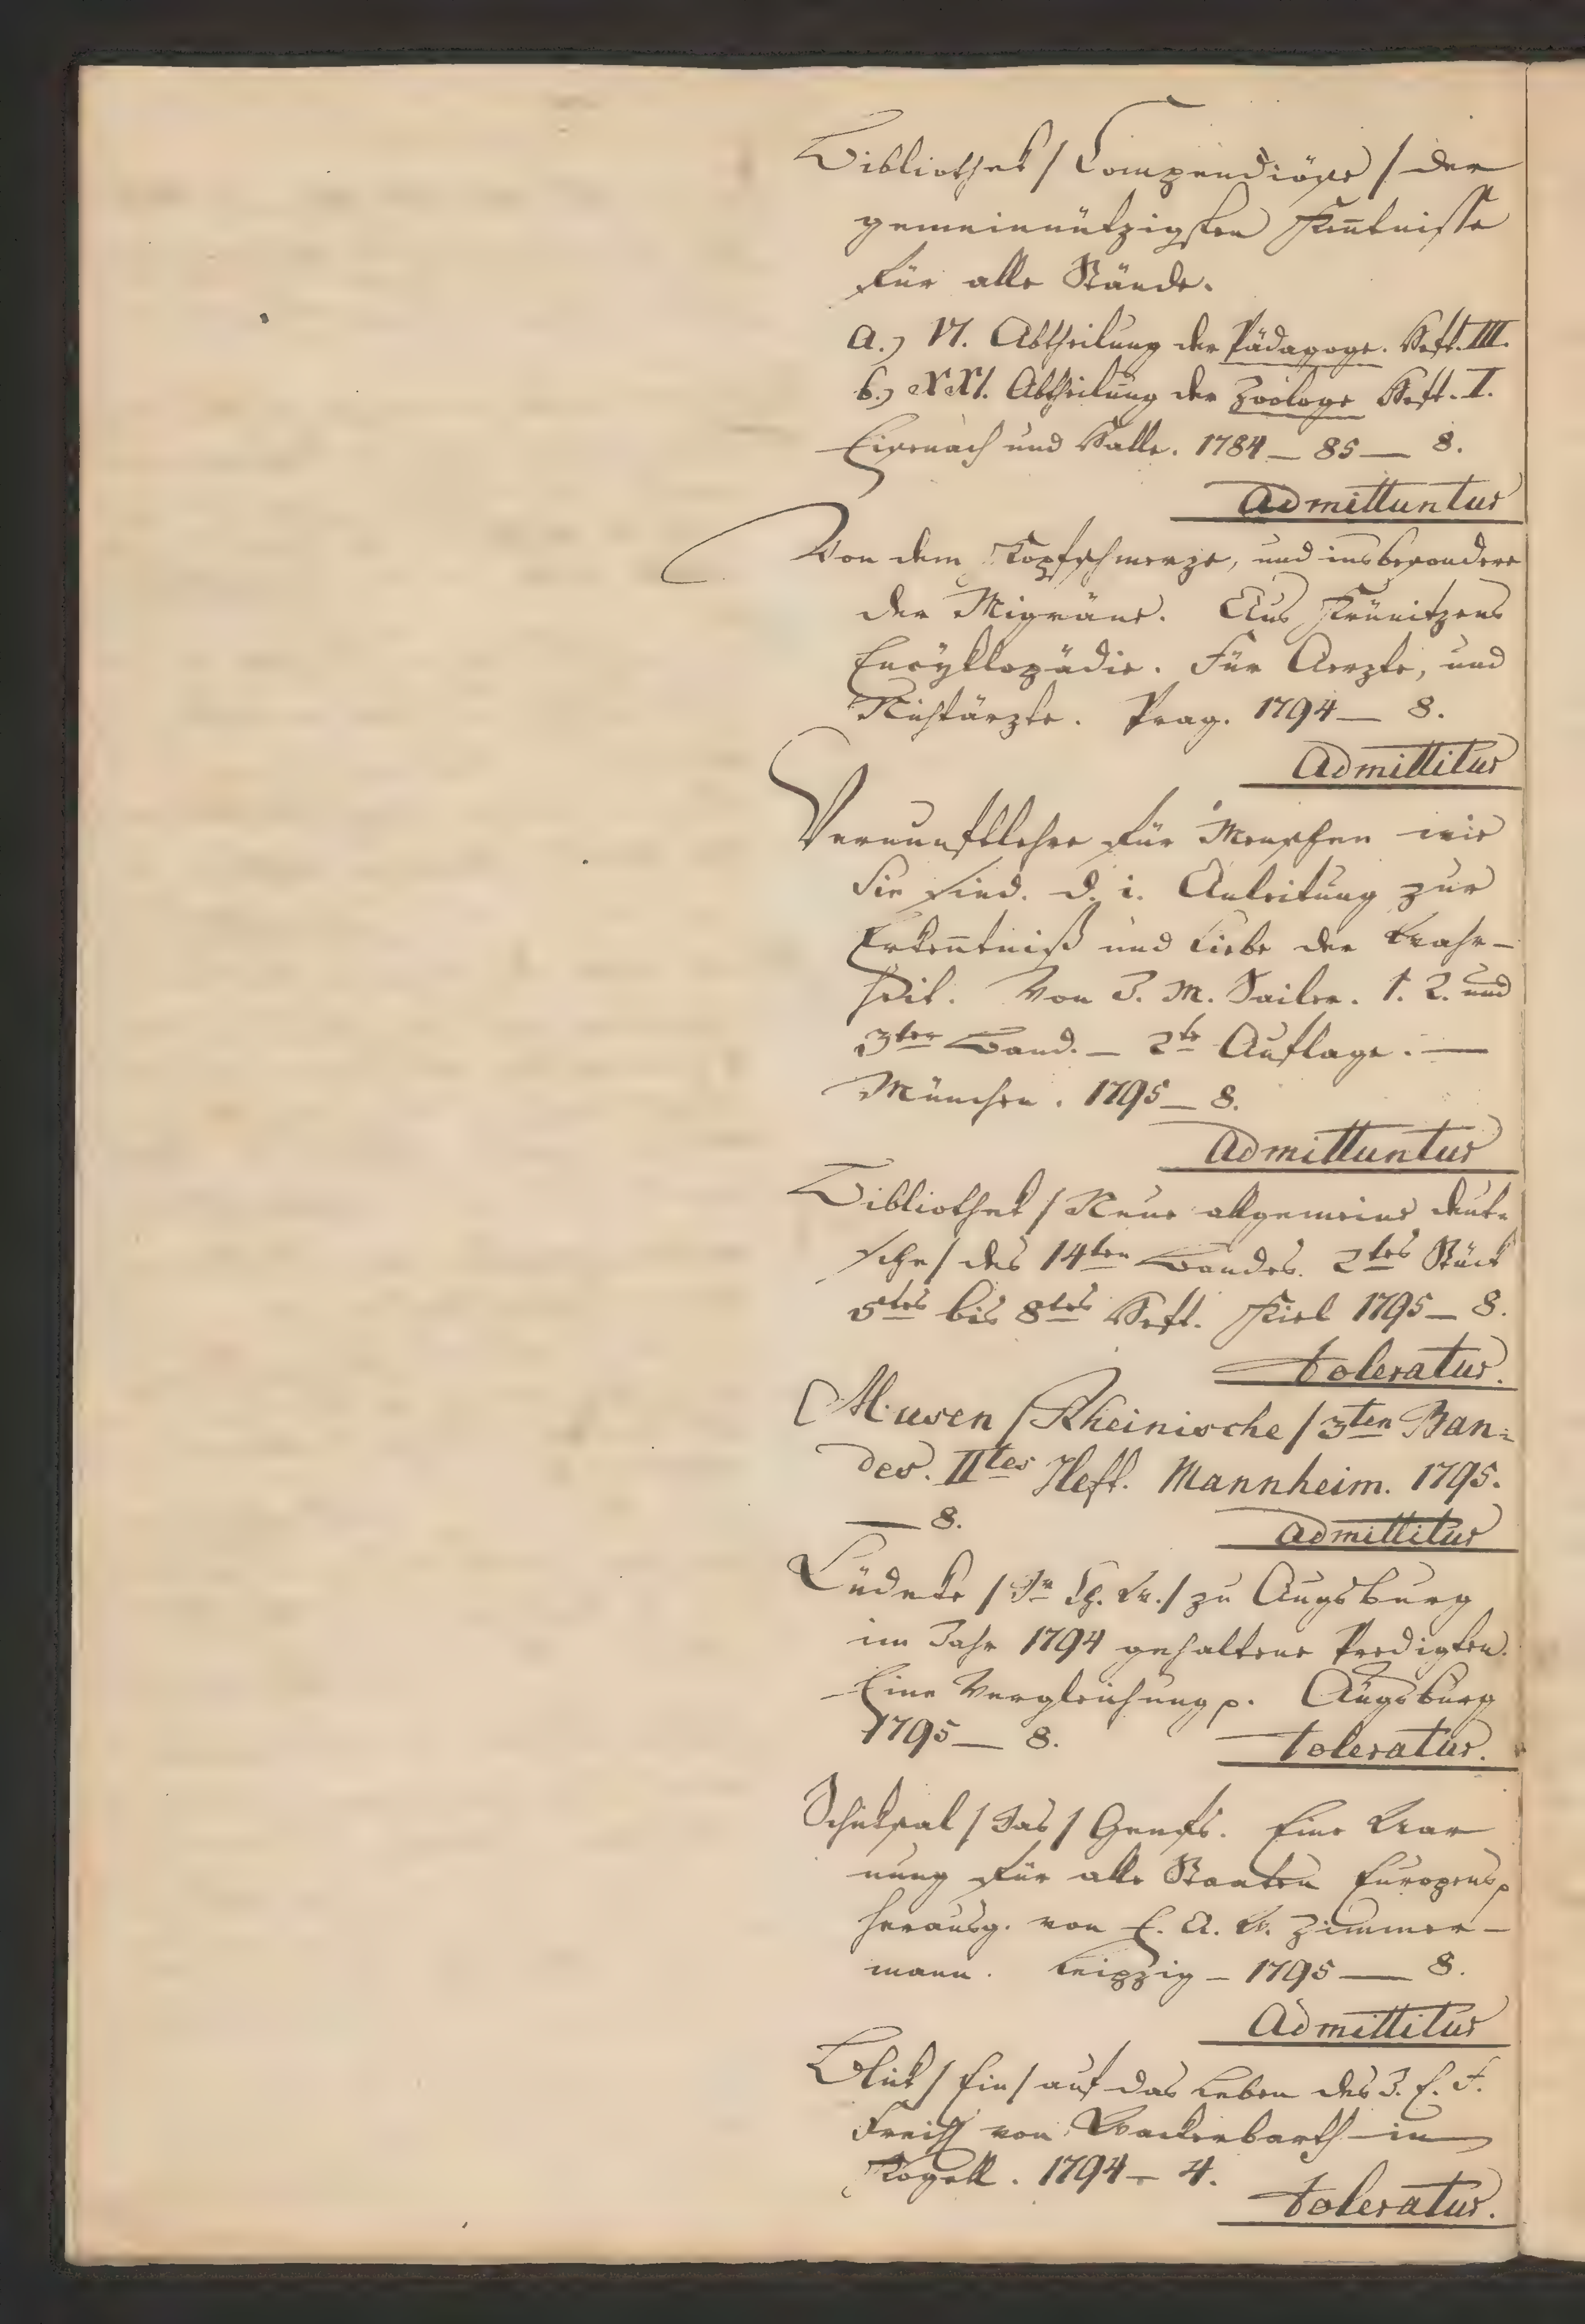 Bibliothek / Compendiöse / der
gemeinnützigsten Keñtnisse
für alle Stände.
a.) VI. Abtheilung der Pädagoge. Heft. III.
b.) XXI. Abtheilung der Zoologe Heft. I.
Eisenach und Halle. 1784 — 85 — 8.
Admittuntur
Von dem Kopfschmerze, und insbesondere
der Migräne. Aus Krünitzens
Encyklopädie. Für Aerzte, und
Nichtärzte. Prag. 1794 — 8.
Admittitur
Vernunftlehre für Menschen wie
Sie sind. d. i. Anleitung zur
Erkeñtniß und Liebe der Wahr-
heit. Von J. M. Sailer. 1. 2. und
3ter Band. — 2te Auflage. —
München. 1795 — 8.
Admittuntur
Bibliothek / Neue allgemeine deut-
sche / des 14ten Bandes. 2tes Stück
5tes bis 8tes Heft. Kiel 1795 — 8.
toleratur.
Musen / Rheinische / 3ten Ban-
des. IItes Heft. Mannheim. 1795.
— 8.
admittitur
Lüdeke / Dr Ch. W. / zu Augsburg
im Jahr 1794 gehaltene Predigten.
Eine Vergleichung p. Augsburg
1795 — 8.
toleratur.
Schicksal / Das / Genfs. Eine War
nung für alle Staaten Europens p
herausg. von E. A. W. Zimmer-
mann. Leipzig — 1795 — 8.
Admittitur
Blick / Ein / auf das Leben des J. C. F.
Freih von Wackerbarth in
Kogell. 1794 — 4.
toleratur.